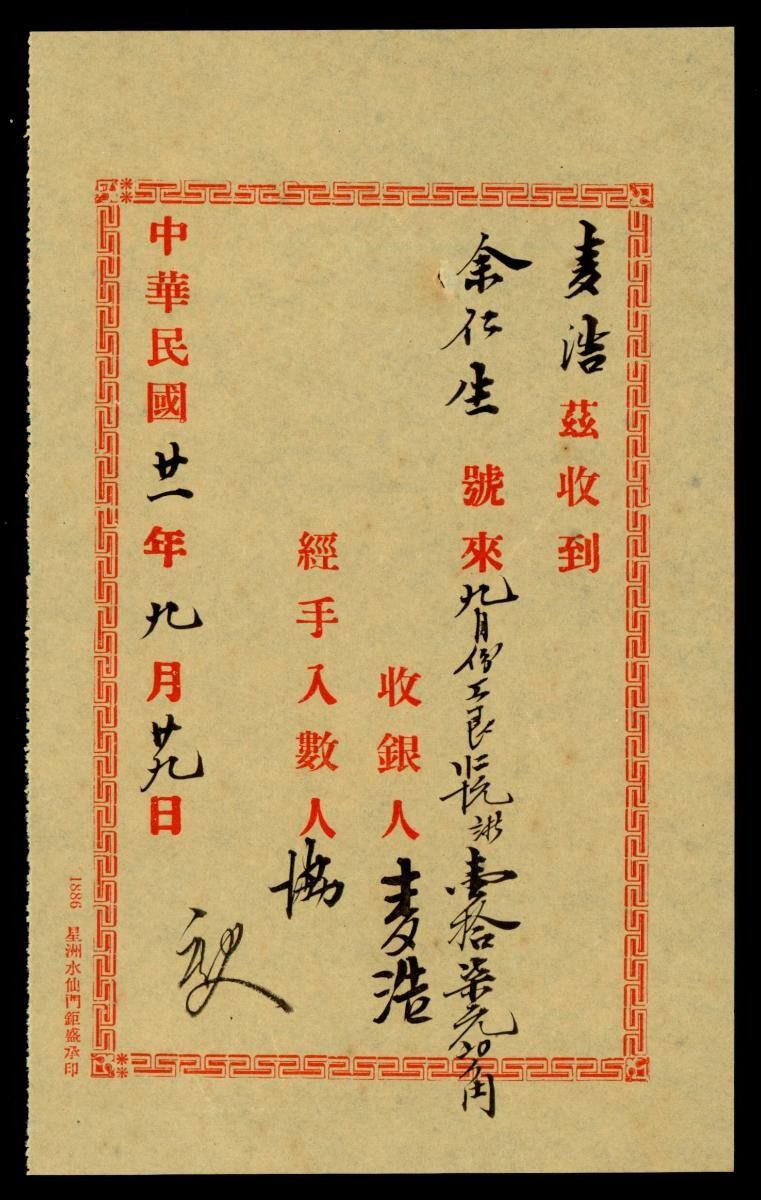 麦浩茲收到
余仁生號來九月份工艮壹拾柒元角
收銀人麦浩
經手入數人協
中華民國廿一年九月廿九日
1886 星洲水仙門鉅盛承印